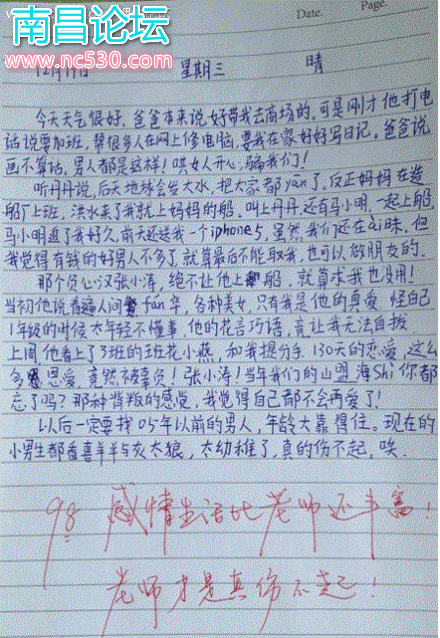 南昌论坛
www.nc530.com
Date.
Page.
12月19日 星期三 晴
今天天气很好，爸爸本来说好带我去商场的。可是刚才他打电
话说要加班，帮很多人在网上修电脑，要我在家好好写日记。爸爸说
画不算话。男人都是这样！哄女人开心，骗我们！
听丹丹说，后天地球会发大水，把大家都yān了，反正妈妈在造
船厂上班，洪水来了我就上妈妈的船。叫上丹丹，还有马小明，一起上船，
马小明追了我好久，前天还送我一个iphone5，虽然我们还在ài昧，但
我觉得有钱的好男人不多了，就算最后不能取我，也可以做朋友的。
那个负心汉张小涛，绝不让他上船，就算求我也没用！
当初他说看遍人间fán华，各种美女，只有我是他的真爱 怪自己
1年级的时候太年轻不懂事，他的花言巧语，竟让我无法自拔
上周他看上了3班的班花小燕，和我提分手 130天的恋爱，这么
多恩爱，竟然被辜负！张小涛！当年我们的山盟海shì你都
忘了吗？那种背叛的感觉，我觉得自己都不会再爱了！
以后一定要找05年以前的男人，年龄大靠得住。现在的
小男生都看喜羊羊与灰太狼，太幼稚了，真的伤不起，唉。
98 感情生活比老师还丰富！
老师才是真伤不起！